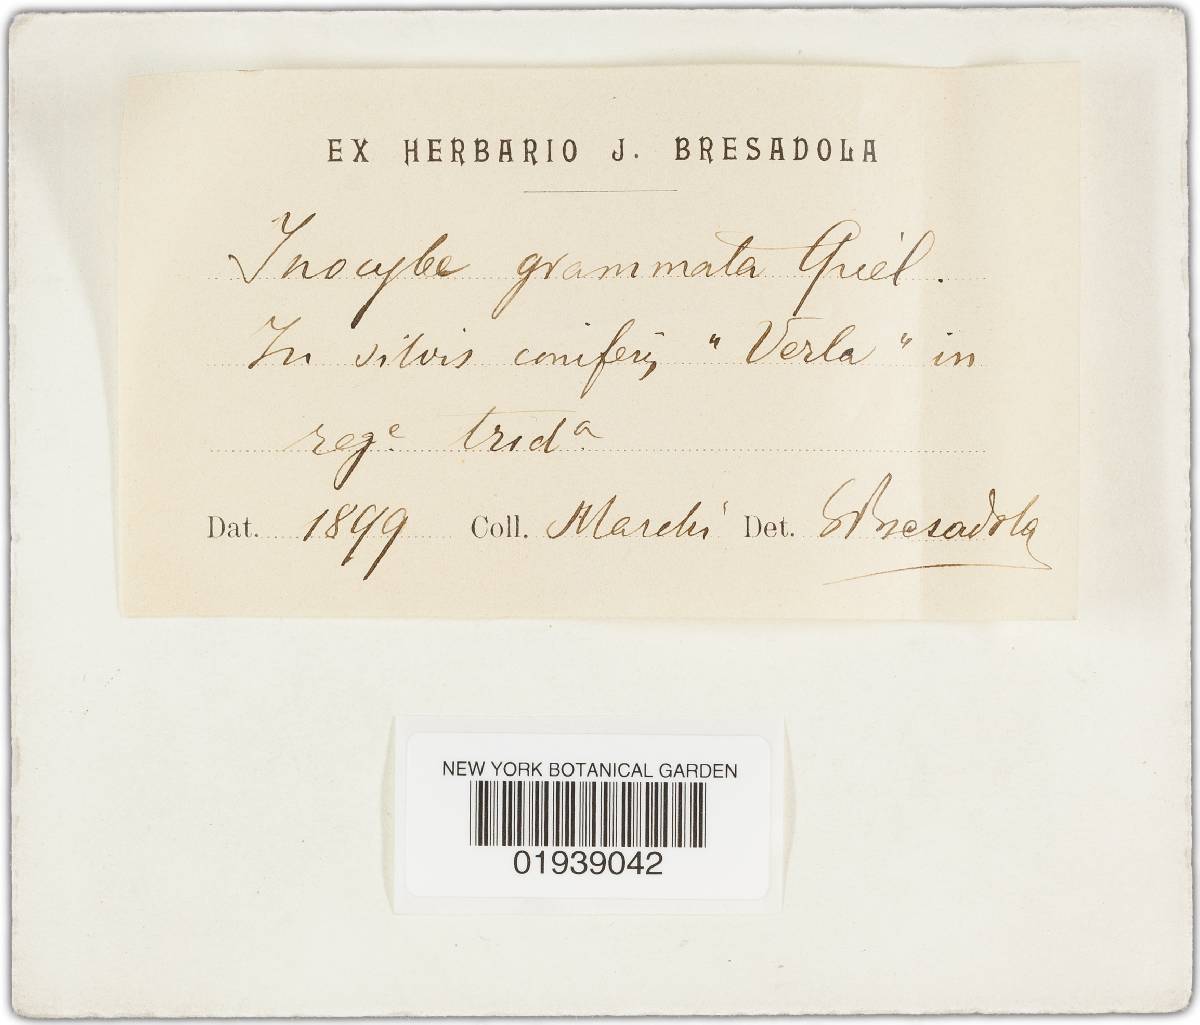 EX HERBARIO J. BRESADOLA
Inocybe grammata Quél.
In silvis conifer, "Verla" in
regᵉ. tridᵃ.
Dat. 1899 Coll. Marchi Det. Bresadola
NEW YORK BOTANICAL GARDEN
01939042